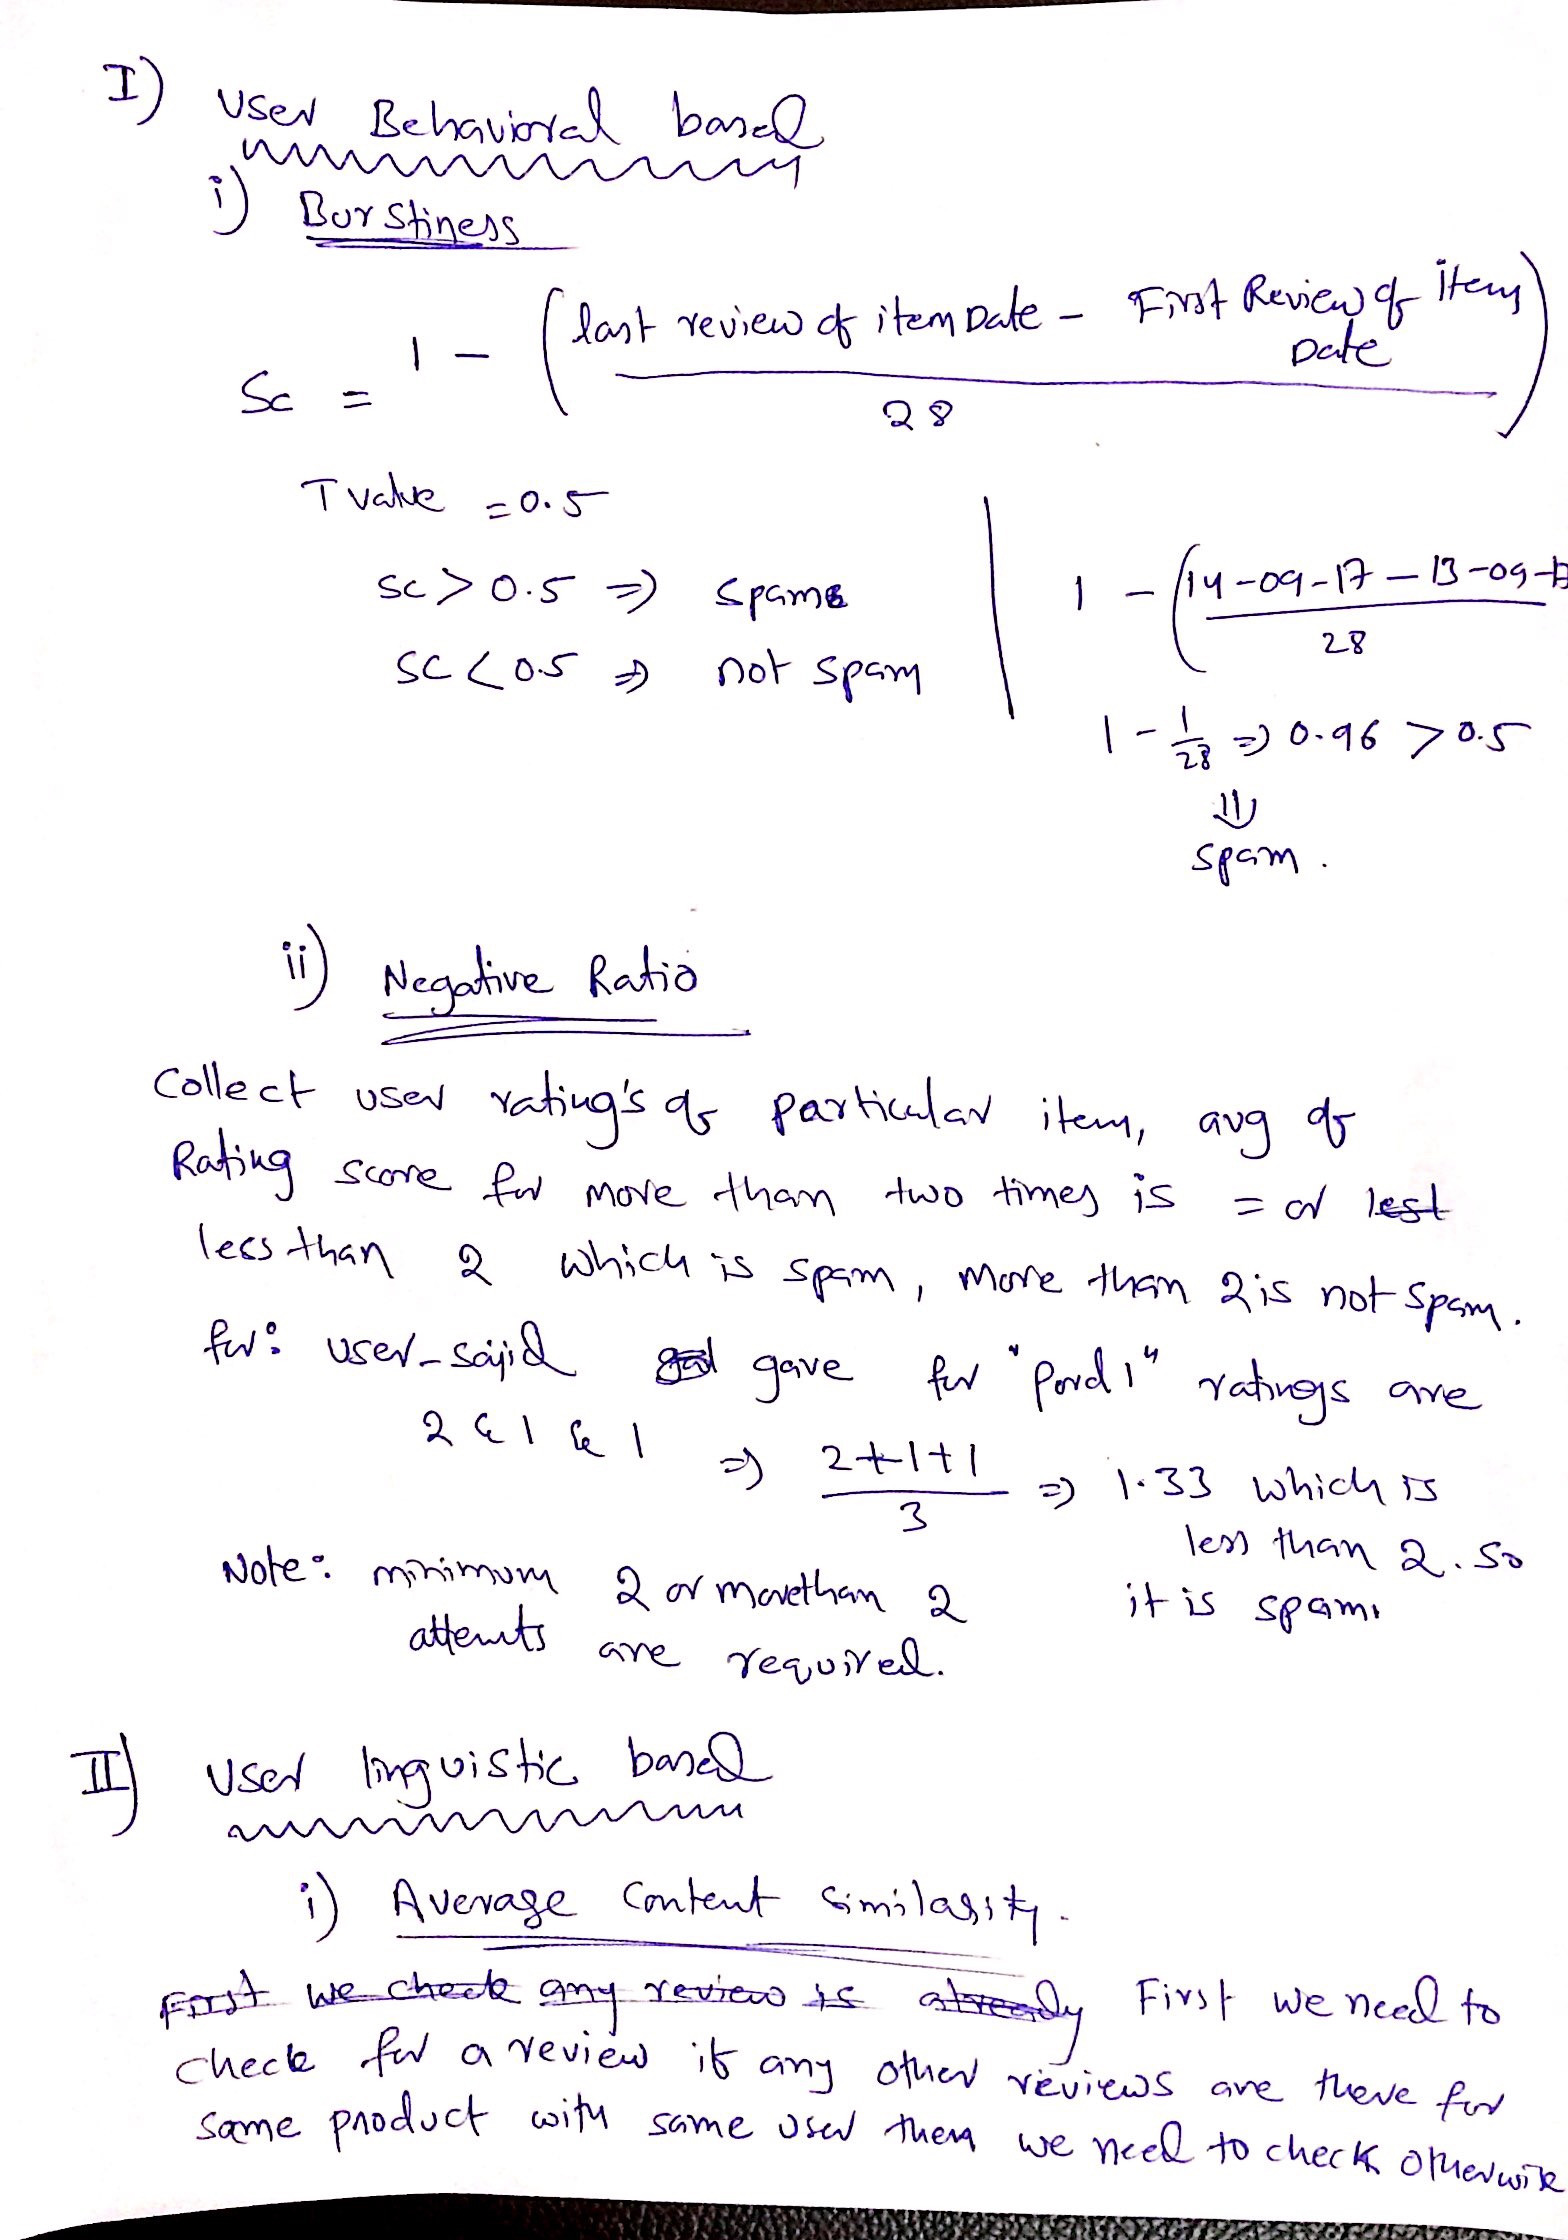 I) User Behavioral based
i) Burstiness
Sc = 1 - (last review of item Date - First Review of item Date / 28)
T value = 0.5
sc > 0.5 ⇒ spam
sc < 0.5 ⇒ not spam
1 - (14-09-17 - 13-09-1 / 28
1 - 1/28 ⇒ 0.96 > 0.5
⇓
spam.
ii) Negative Ratio
Collect user rating's of particular item, avg of
Rating score for more than two times is = or lest
less than 2 which is spam, more than 2 is not spam.
for: user-sajid gave for "pord 1" ratings are
2 & 1 & 1 ⇒ 2+1+1 / 3 ⇒ 1.33 which is
less than 2. so
it is spam.
Note: minimum 2 or morethan 2
attemts are required.
II) User linguistic based
i) Average Content Similarity.
First we check any review is already First we need to
check for a review if any other reviews are there for
same product with same user then we need to check otherwise